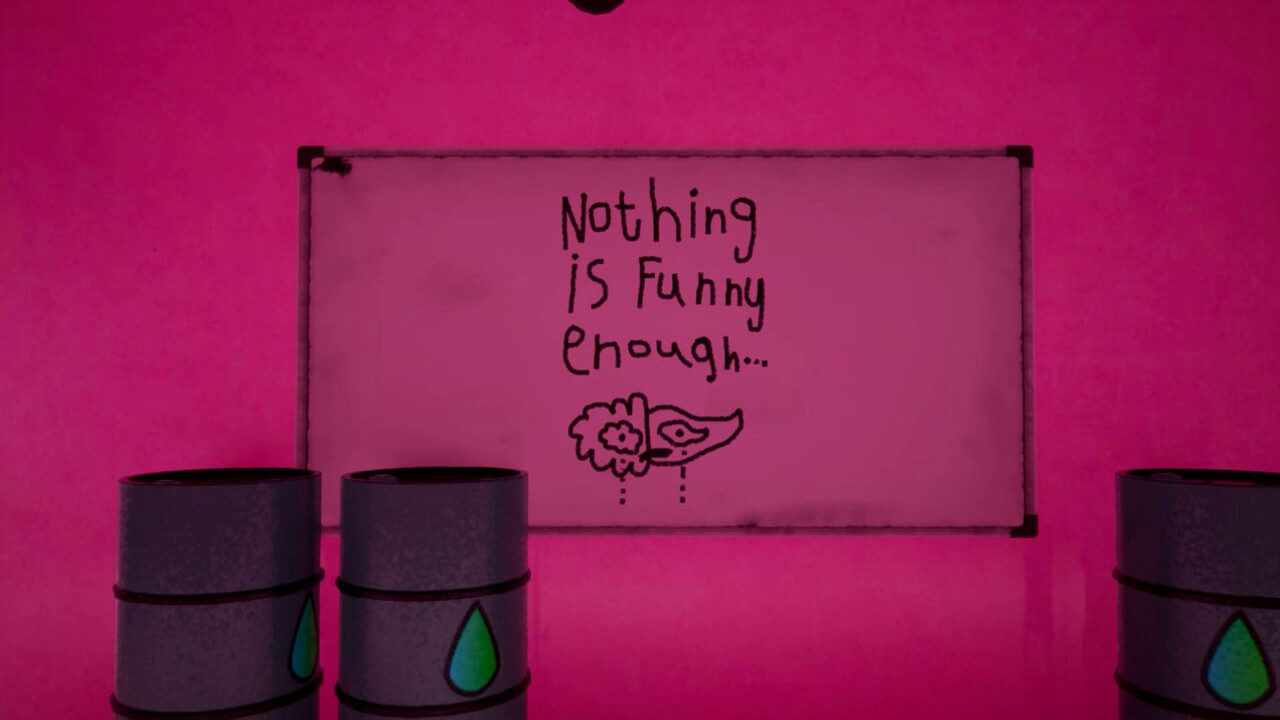 Nothing
is Funny
enough...